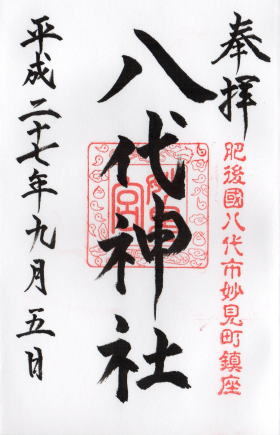 奉拝
肥後國八代市妙見町鎮座
八代神社
平成二十七年九月五日